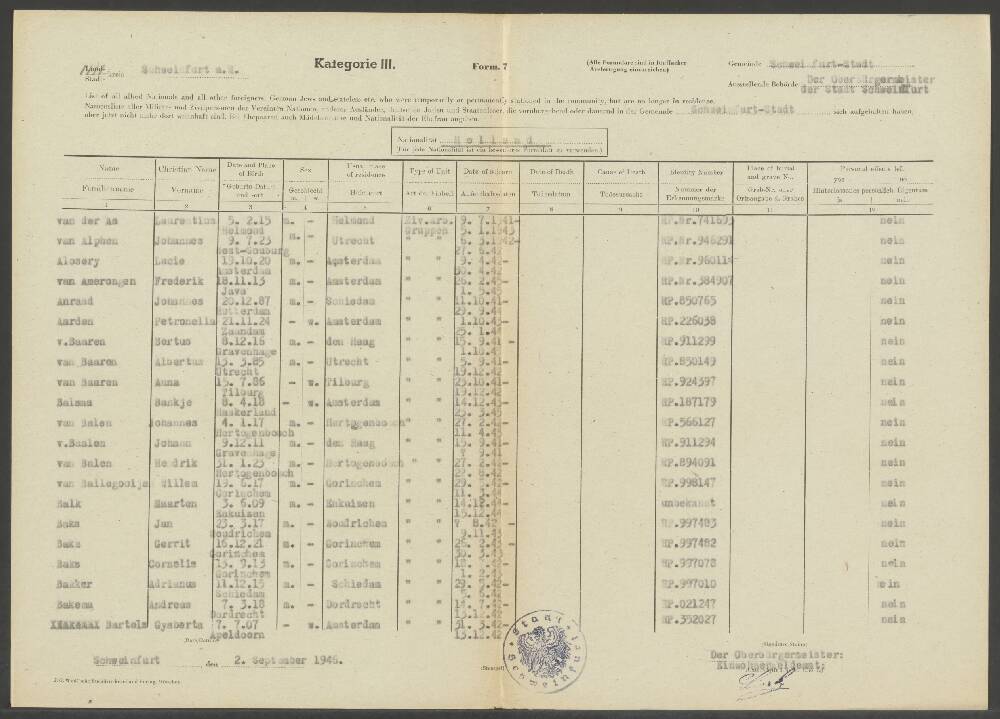 Kategorie III.
Form. 7
(Alle Formulare sind in fünffacher
Ausfertigung einzureichen)
Gemeinde Schweinfurt-Stadt
Stadt-kreis Schweinfurt a.M.
Ausstellende Behörde Der Oberbürgermeister
der Stadt Schweinfurt
List of all allied Nationals and all other foreigners, German Jews and stateless etc. who were temporarily or permanently stationed in the community, but are no longer in residence.
Namensliste aller Militär- und Zivilpersonen der Vereinten Nationen, anderer Ausländer, deutscher Juden und Staatenloser, die vorübergehend oder dauernd in der Gemeinde Schweinfurt-Stadt sich aufgehalten haben,
aber jetzt nicht mehr dort wohnhaft sind. Bei Ehegatten auch Mädchenname und Nationalität der Ehefrau angeben.
Nationalität Holland
(Für jede Nationalität ist ein besonderes Formular zu verwenden.)
Name Christian Name Date and Place of Birth Sex Usual place of residence Type of Unit Date of Sojourn Date of Death Cause of Death Identity Number Place of burial and grave No. Personal effects left yes no
Familienname Vorname Geburts-Datum und -ort Geschlecht m. w. Heimatort Art der Einheit Aufenthaltszeiten Todesdatum Todesursache Nummer der Erkennungsmarke Grab-No. und Ortsangabe d. Grabes Hinterlassenes persönlich. Eigentum ja nein
1 2 3 4 5 6 7 8 9 10 11 12
van der As Laurentius 5. 2.15 m. - Helmond Ziv.arb. 9. 7.1941- RP.Nr.741693 nein
Helmond Gruppen 5. 1.1943
van Alphen Johannes 9. 7.23 m. - Utrecht " " 6. 3.1942- RP.Nr.946291 nein
West-Souburg 27. 6.42
Alosery Lucie 19.10.20 m. - Amsterdam " " 9. 4.42- RP.Nr.960114 nein
Amsterdam 30. 4.42
van Amerongen Frederik 18.11.13 m. - Amsterdam " " 26. 2.43- RP.Nr.384907 nein
Java 1. 5.45
Anraad Johannes 20.12.87 m. - Schiedam " " 11.10.41- RP.850765 nein
Rotterdam 29. 9.44
Aarden Petronella 21.11.24 - w. Amsterdam " " 1.10.43- RP.226038 nein
Zaandam 25. 1.44
v.Baaren Bertus 8.12.16 m. - den Haag " " 15. 9.41 - RP.911299 nein
Gravenhage 1.10.43
van Baaren Albertus 13. 3.85 m. - Utrecht " " 5. 9.41- RP.850149 nein
Utrecht 19.12.42
van Baaren Anna 15. 7.86 - w. Tilburg " " 23.10.41- RP.924397 nein
Tilburg 19.12.42
Balsma Bankje 8. 4.18 - w. Amsterdam " " 14.12.43- RP.187179 nein
Haskerland 25. 3.45
van Balen Johannes 4. 1.17 m. - Hertogenbosch " " 27. 2.42- RP.566127 nein
Hertogenbosch 11. 4.43
v.Baalen Johann 9.12.11 m. - den Haag " " 15. 9.41- RP.911294 nein
Gravenhage ? 9.41
van Balen Hendrik 31. 1.23 m. - Hertogenbosch " " 27. 2.42- RP.894091 nein
Hertogenbosch 29. 8.42
van Ballegooije Willem 19. 6.17 m. - Gorinchem " " 29. 5.42- RP.998147 nein
Gorinchem 11. 3.44
Balk Maarten 3. 6.09 m. - Enkuisen " " 14.12.44- unbekannt nein
Enkuisen 15.12.44
Baks Jan 23. 3.17 m. - Woudrichem " " ? 8.42 - RP.997483 nein
Woudrichem 9.11.43
Baks Gerrit 16.12.21 m. - Gorinchem " " 26. 2.43- RP.997482 nein
Gorinchem 30. 3.43
Baks Cornelis 13. 9.13 m. - Gorinchem " " RP.997078 nein
Gorinchem
Bakker Adrianus 11.12.15 m. - Schiedam " " 29. 5.42- RP.997010 nein
Schiedam 5. 6.42
Bakema Andreas 7. 3.18 m. - Dordrecht " " 14. 7.42- RP.021247 nein
Dordrecht 13.12.42
Bartels Gysberta 7. 7.07 - w. Amsterdam " " 31. 3.42- RP.352027 nein
Apeldoorn 13.12.42
Schweinfurt den 2. September 1946.
(Stempel)
Der Oberbürgermeister:
Einwohnermeldeamt: